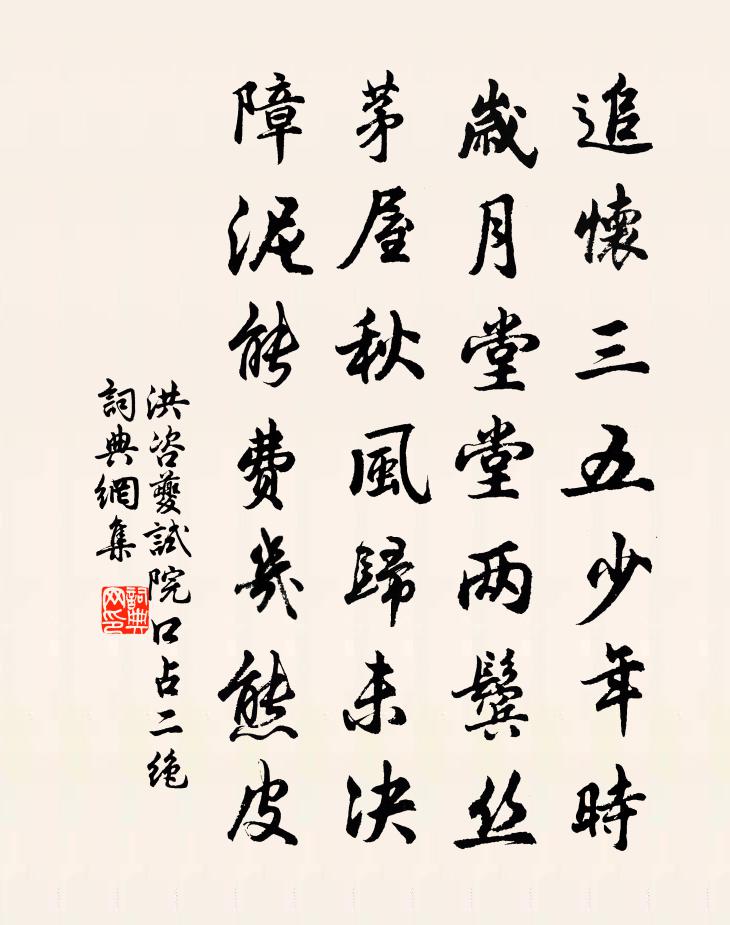 追懷三五少年時
歲月堂堂两鬢丝
茅屋秋風歸未决
障泥能費幾熊皮
洪咨夔試院口占二绝
詞典網集
詞典
网印